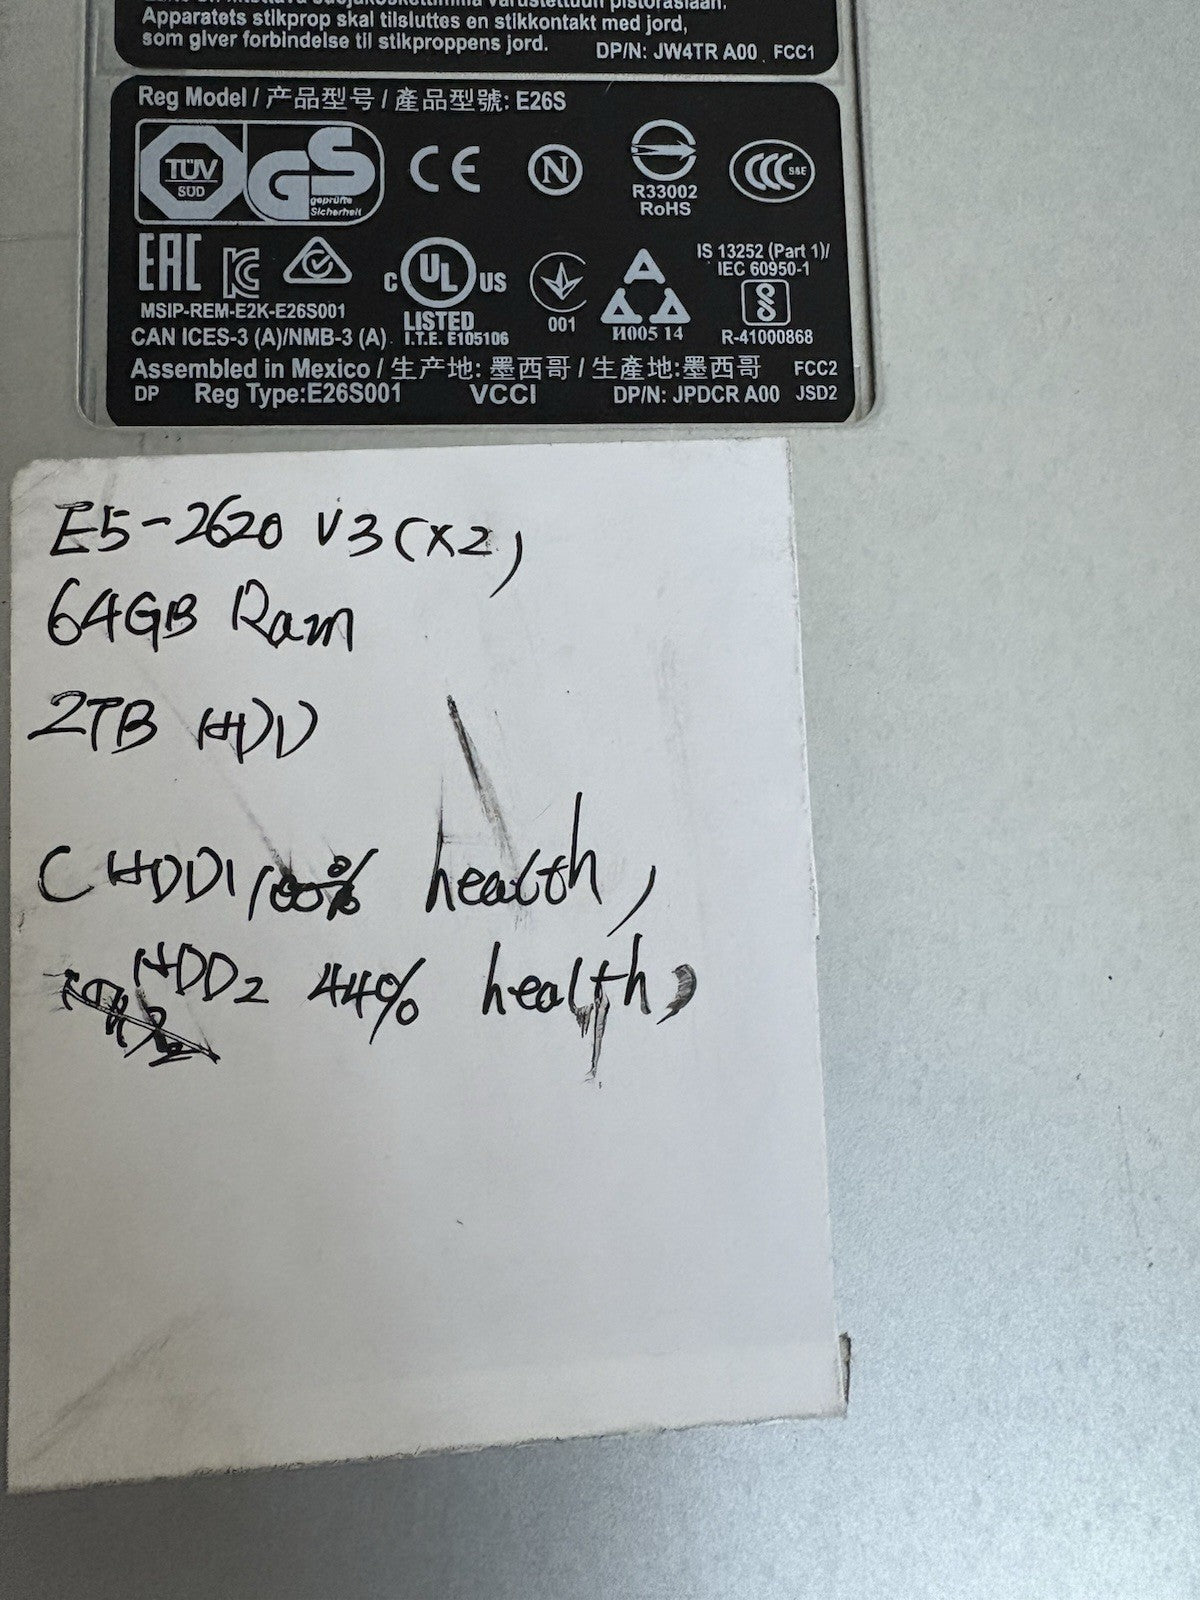 Apparatets stikprop skal tilsluttes en stikkontakt med jord,
som giver forbindelse til stikproppens jord. DP/N: JW4TR A00 FCC1
Reg Model / 产品型号 / 產品型號: E26S
TÜV SÜD GS geprüfte Sicherheit CE N R33002 RoHS CCC S&E
EAC KC C UL US 001 IS 13252 (Part 1)/ IEC 60950-1
MSIP-REM-E2K-E26S001 LISTED И005 14 R-41000868
CAN ICES-3 (A)/NMB-3 (A) I.T.E. E105106
Assembled in Mexico / 生产地: 墨西哥 / 生產地:墨西哥 FCC2
DP Reg Type:E26S001 VCCI DP/N: JPDCR A00 JSD2
E5-2620 V3 (x2)
64GB Ram
2TB HDD
C HDD1 100% health,
HDD2 44% health)